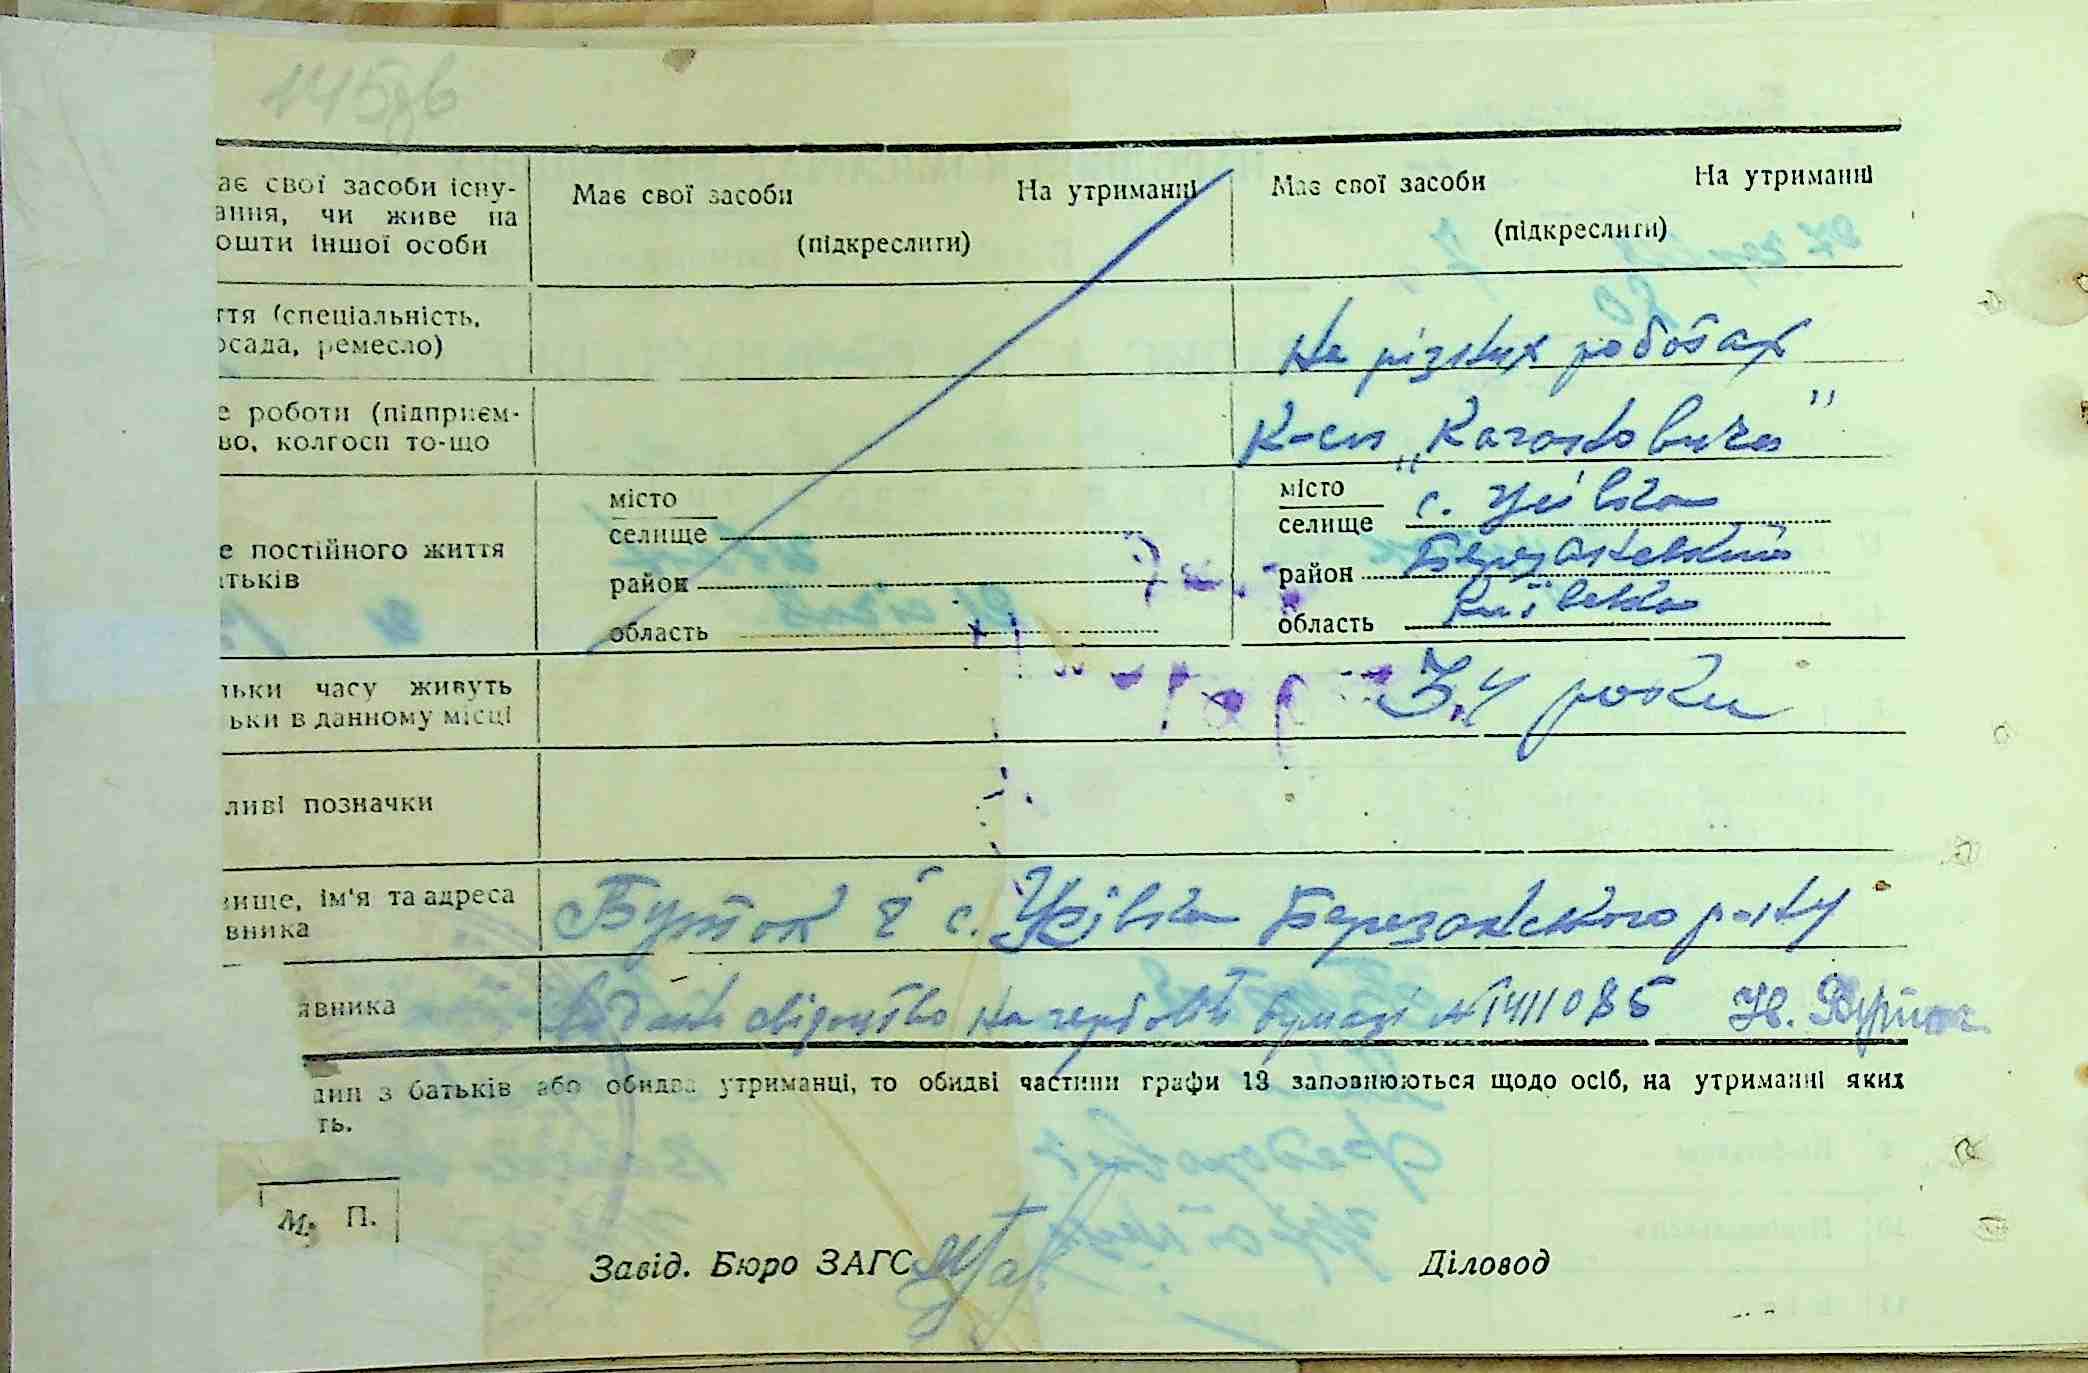 145зв
ає свої засоби існу-
ання, чи живе на
ошти іншої особи
Має свої засоби На утриманні
(підкреслити)
Має свої засоби На утриманні
(підкреслити)
ття (спеціальність,
осада, ремесло)
На різних роботах
е роботи (підприєм-
во, колгосп то-що
К-сп „Кагановича"
е постійного життя
атьків
місто
селище
район
область
місто
селище с. Усівка
район Березанський
область Київська
льки часу живуть
ьки в данному місці
34 роки
ливі позначки
вище, ім'я та адреса
вника
Буток с. Усівка Березанського р-ну
явника
видане свідоцтво на гербовій бумазі № 1411085 Н. Буток
дин з батьків або обидва утриманці, то обидві частини графи 13 заповнюються щодо осіб, на утриманні яких
ть.
М. П.
Завід. Бюро ЗАГС
Діловод